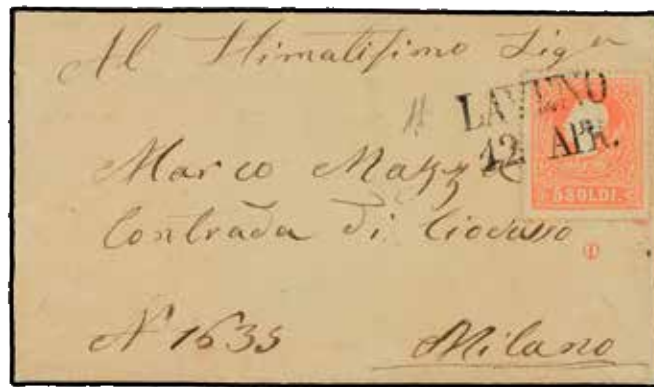 Al Stimatissimo Sigr
LAVENO
12 APR.
Marco
5 SOLDI
Contrada di Ciovasso
N° 1635
Milano